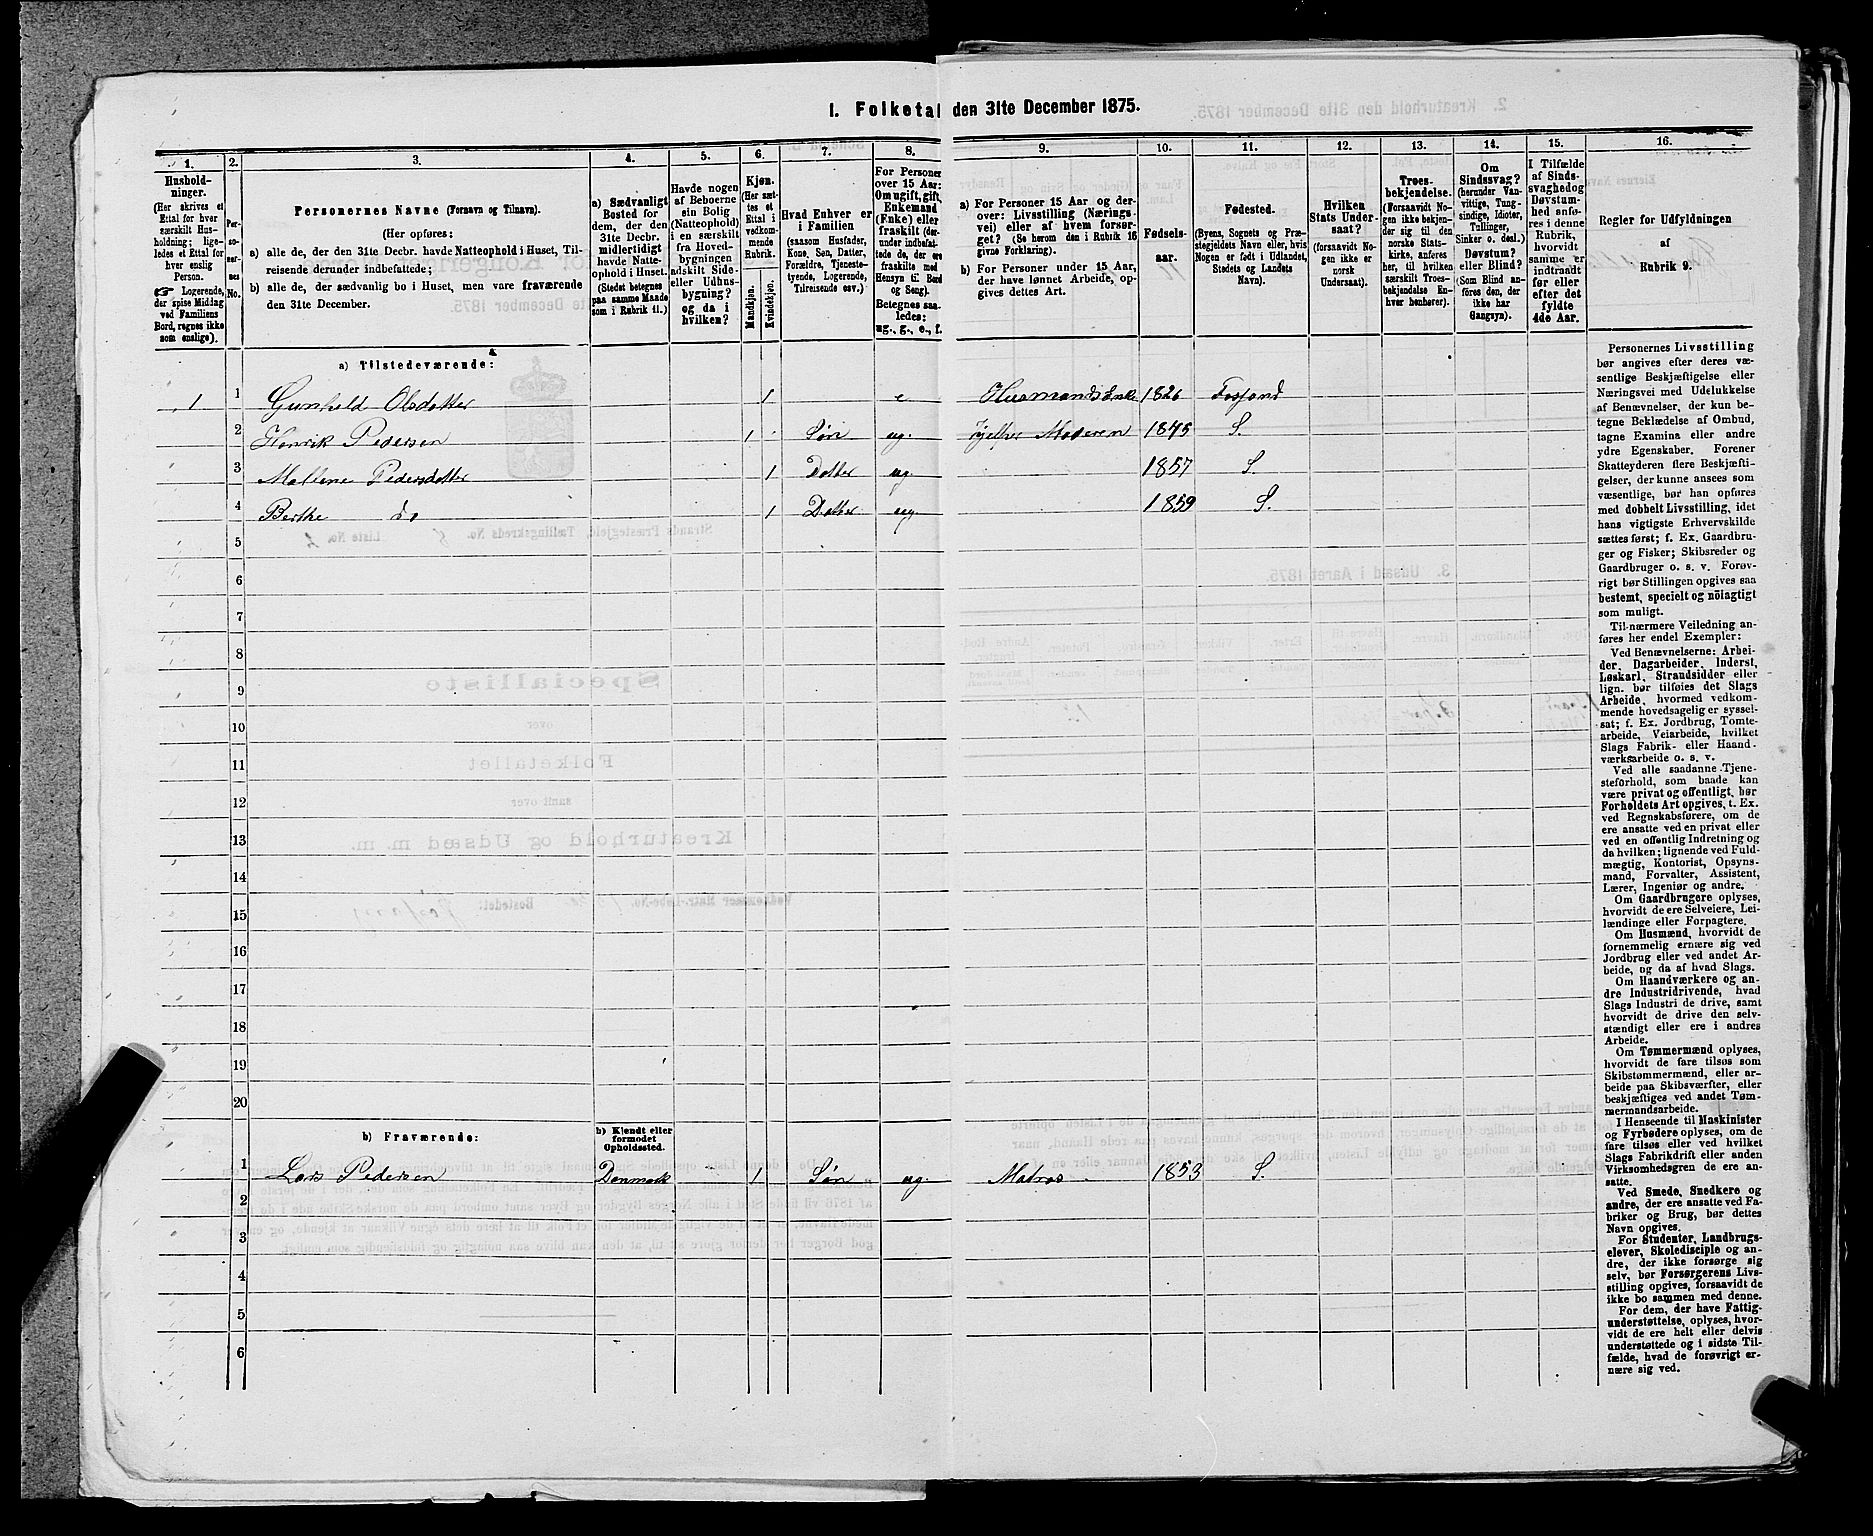 1. Folketal den 31te December 1875.
1. 2. 3. 4. 5. 6. 7. 8. 9. 10. 11. 12. 13. 14. 15. 16.
Hushold-
ninger.
(Her skrives et
Ettal for hver
særskilt Hus-
holdning; lige-
ledes et Ettal for
hver enslig
Person.
☞ Logerende,
der spise Middag
ved Familiens
Bord, regnes ikke
som enslige).
Per-
so-
ner-
nes
No.
Personernes Navne (Fornavn og Tilnavn).
(Her opføres:
a) alle de, der den 31te Decbr. havde Natteophold i Huset, Til-
reisende derunder indbefattede;
b) alle de, der sædvanlig bo i Huset, men vare fraværende
den 31te December.
a) Sædvanligt
Bosted for
dem, der den
31te Decbr.
midlertidigt
havde Natte-
ophold i Huset.
(Stedet betegnes
paa samme Maade
som i Rubrik 11.)
Havde nogen
af Beboerne
sin Bolig
(Natteophold)
i en særskilt
fra Hoved-
bygningen
adskilt Side-
eller Udhus-
bygning?
og da i
hvilken?
Kjøn.
(Her sæt-
tes et
Ettal i
vedkom-
mende
Rubrik.
Mandkjøn.
Kvindekjøn.
Hvad Enhver er
i Familien
(saasom Husfader,
Kone, Søn, Datter,
Forældre, Tjeneste-
tyende, Logerende,
Tilreisende osv.)
For Personer
over 15 Aar:
Om ugift, gift,
Enkemand
(Enke) eller
fraskilt (der-
under indbefat-
tede de, der ere
fraskilte med
Hensyn til Bord
og Seng).
Betegnes saa-
ledes:
ug., g., e., f.
a) For Personer 15 Aar og der-
over: Livsstilling (Nærings-
vei) eller af hvem forsør-
get? (Se herom den i Rubrik 16
givne Forklaring).
b) For Personer under 15 Aar,
der have lønnet Arbeide, op-
gives dettes Art.
Fødsels-
aar.
Fødested.
(Byens, Sognets og Præ-
stegjeldets Navn eller, hvis
Nogen er født i Udlandet,
Stedets og Landets
Navn).
Hvilken
Stats Under-
saat?
(forsaavidt No-
gen ikke er
norsk
Undersaat).
Troes-
bekjendelse.
(Forsaavidt No-
gen ikke bekjen-
der sig til den
norske Stats-
kirke, anføres
her, til hvilken
særskilt Troes-
bekjendelse En-
hver henhører).
Om
Sindssvag?
(herunder Van-
vittige, Tung-
sindige, Idioter,
Tullinger,
Sinker o. desl.)
Døvstum?
eller Blind?
(Som Blind an-
føres den, der
ikke har
Gangsyn).
I Tilfælde
af Sinds-
svaghed og
Døvstum-
hed anfø-
res i denne
Rubrik,
hvorvidt
samme er
indtraadt
før eller
efter det
fyldte
4de Aar.
Regler for Udfyldningen
af
Rubrik 9.
a) Tilstedeværende:
1 1 Gunhild Olsdatter 1 e 1826 Fosjand
2 Henrik Pedersen 1 Søn ug. Moderen 1845 S.
3 Mallene Pedersdatter 1 Datter ug. 1857 S.
4 Berthe do 1 Datter ug. 1859 S.
5
6
7
8
9
10
11
12
13
14
15
16
17
18
19
20
b) Fraværende:
b) Kjendt eller
formodet
Opholdssted.
1 Lars Pedersen Danmark 1 Søn ug. Matros 1853 S.
2
3
4
5
6
Personernes Livsstilling
bør angives efter deres væ-
sentlige Beskjæftigelse eller
Næringsvei med Udelukkelse
af Benævnelser, der kun be-
tegne Beklædelse af Ombud,
tagne Examina eller andre
ydre Egenskaber. Forener
Skatteyderen flere Beskjæfti-
gelser, der kunne ansees som
væsentlige, bør han opføres
med dobbelt Livsstilling, idet
hans vigtigste Erhvervskilde
sættes først; f. Ex. Gaardbru-
ger og Fisker; Skibsreder og
Gaardbruger o. s. v. Forøv-
rigt bør Stillingen opgives saa
bestemt, specielt og nøiagtigt
som muligt.
Til nærmere Veiledning an-
føres her endel Exempler:
Ved Benævnelserne: Arbei-
der, Dagarbeider, Inderst,
Løskarl, Strandsidder eller
lign. bør tilføies det Slags
Arbeide, hvormed vedkom-
mende hovedsagelig er syssel-
sat; f. Ex. Jordbrug, Tomte-
arbeide, Veiarbeide, hvilket
Slags Fabrik- eller Haand-
værksarbeide o. s. v.
Ved alle saadanne Tjene-
steforhold, som baade kan
være privat og offentligt, bør
Forholdets Art opgives, t. Ex.
ved Regnskabsførere, om de
ere ansatte ved en privat eller
ved en offentlig Indretning og
da hvilken; lignende ved Fuld-
mægtig, Kontorist, Opsyns-
mand, Forvalter, Assistent,
Lærer, Ingeniør og andre.
Om Gaardbrugere oplyses,
hvorvidt de ere Selveiere, Lei-
lændinge eller Forpagtere.
Om Husmænd, hvorvidt de
fornemmelig ernære sig ved
Jordbrug eller ved andet Ar-
beide, og da af hvad Slags.
Om Haandværkere og an-
dre Industridrivende, hvad
Slags Industri de drive, samt
hvorvidt de drive den selv-
stændigt eller ere i andres
Arbeide.
Om Tømmermænd oplyses,
hvorvidt de fare tilsøs som
Skibstømmermænd, eller ar-
beide paa Skibsværfter, eller
beskjæftiges ved andet Tøm-
mermandsarbeide.
I Henseende til Maskinister
og Fyrbødere oplyses, om de
fare tilsøs eller ved hvilket
Slags Fabrikdrift eller anden
Virksomhedsgren de ere an-
satte.
Ved Smede, Snedkere og
andre, der ere ansatte ved Fa-
briker og Brug, bør dettes
Navn opgives.
For Studenter, Landbrugs-
elever, Skoledisciple og an-
dre, der ikke forsørge sig
selv, bør Forsørgerens Livs-
stilling opgives, forsaavidt de
ikke bo sammen med denne.
For dem, der have Fattig-
understøttelse, oplyses, hvor-
vidt de ere helt eller delvis
understøttede og i sidste Til-
fælde, hvad de forøvrigt er-
nære sig ved.